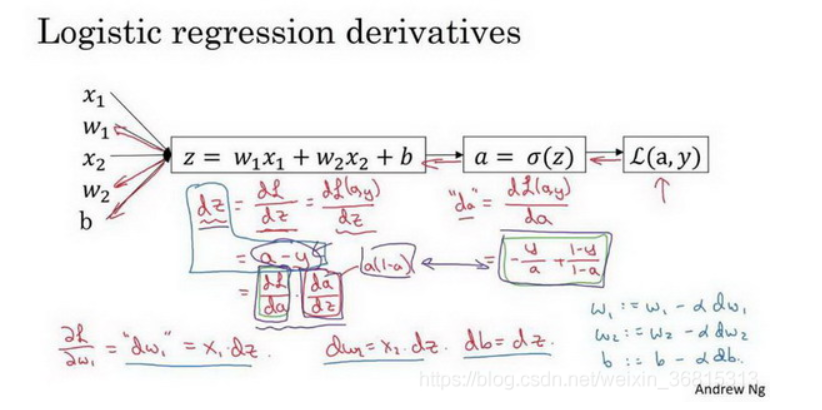 Logistic regression derivatives
x₁
w₁
x₂
w₂
b
z = w₁x₁ + w₂x₂ + b
a = σ(z)
ℒ(a, y)
dz = dℒ/dz = dℒ(a,y)/dz
"da" = dℒ(a,y)/da
= a - y
a(1-a)
= -y/a + 1-y/1-a
= dℒ/da · da/dz
∂ℒ/∂w₁ = "dw₁" = x₁·dz.
dw₂ = x₂·dz.
db = dz.
w₁ := w₁ - α dw₁
w₂ := w₂ - α dw₂
b := b - α db.
https://blog.csdn.net/weixin_36815313
Andrew Ng